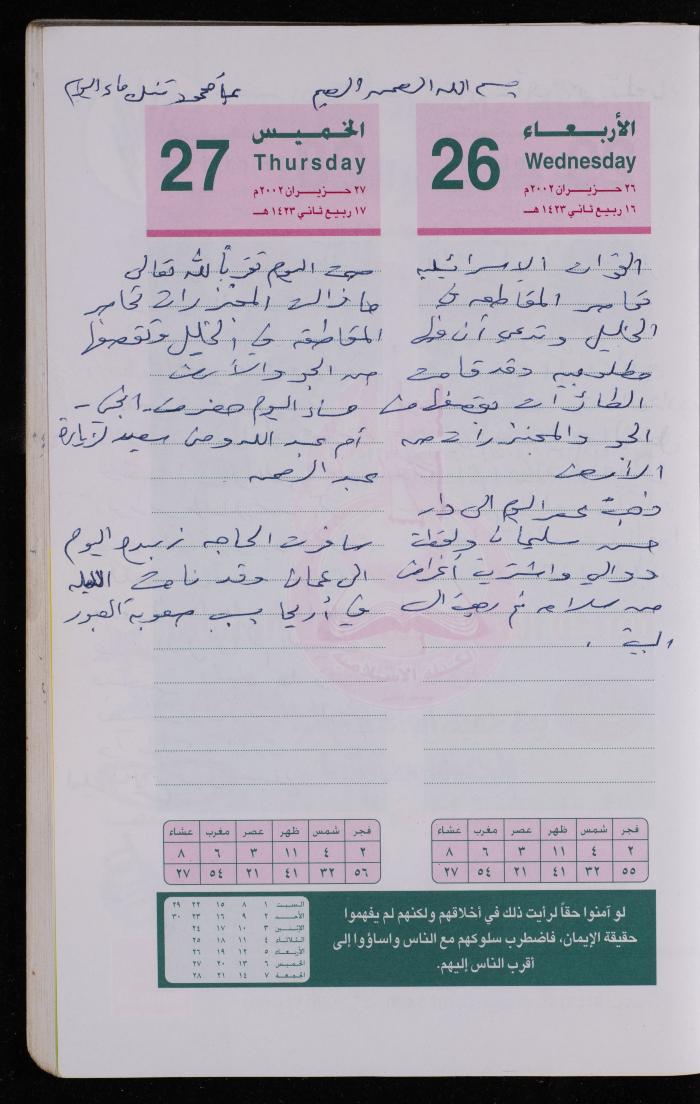 بسم الله الرحمن الرحيم
الأربعاء
26
Wednesday
٢٦ حزيران ٢٠٠٢م
١٦ ربيع ثاني ١٤٢٣هـ
القوات الاسرائيليه
تحاصر المقاطعه في
الخليل وتدعي أن فيها
مطلوبيه وقد قامت
الطائرات بقصفها من
الجو والمجنزرات من
الأرض
ذهبت عصر اليوم الى دار
حسن سليمان ولقطت
دوالي واشتريت أغراض
من سلامه ثم رجعت الى
البيت .
الخميس
27
Thursday
٢٧ حزيران ٢٠٠٢م
١٧ ربيع ثاني ١٤٢٣هـ
صمت اليوم تقرباً لله تعالى
ما زالت المجنزرات تحاصر
المقاطعه في الخليل وتقصفها
من الجو والأرض
مساء اليوم حضرت
أم عبد الله ومن سعيد لزيارة
عبد الرحمن .
سافرت الحاجه زبيده اليوم
الى عمان وقد نامت الليله
في أريحا بسبب صعوبة العبور
فجر شمس ظهر عصر مغرب عشاء
٢ ٤ ١١ ٣ ٦ ٨
٥٥ ٣٢ ٤١ ٢١ ٥٤ ٢٧
فجر شمس ظهر عصر مغرب عشاء
٢ ٤ ١١ ٣ ٦ ٨
٥٦ ٣٢ ٤١ ٢١ ٥٤ ٢٧
لو آمنوا حقاً لرأيت ذلك في أخلاقهم ولكنهم لم يفهموا
حقيقة الإيمان، فاضطرب سلوكهم مع الناس واساؤوا إلى
أقرب الناس إليهم.
السبت ١ ٨ ١٥ ٢٢ ٢٩
الأحد ٢ ٩ ١٦ ٢٣ ٣٠
الإثنين ٣ ١٠ ١٧ ٢٤
الثلاثاء ٤ ١١ ١٨ ٢٥
الأربعاء ٥ ١٢ ١٩ ٢٦
الخميس ٦ ١٣ ٢٠ ٢٧
الجمعة ٧ ١٤ ٢١ ٢٨